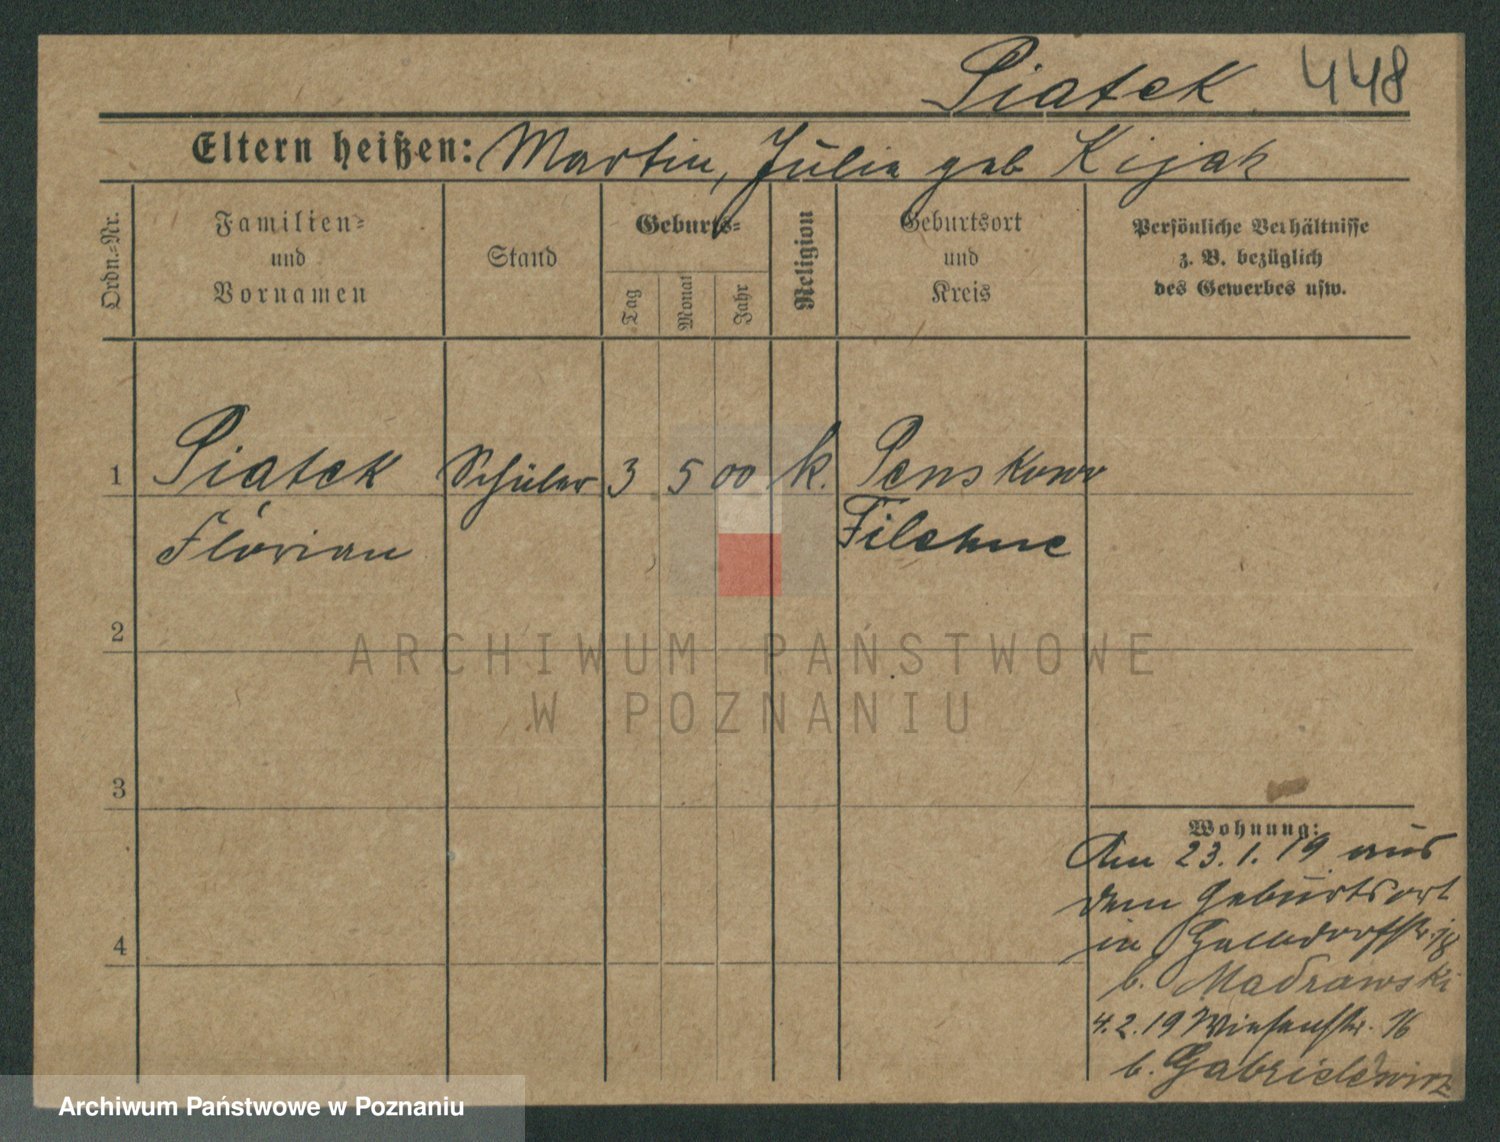 Piatek 448
Eltern heißen: Martin, Julia geb Kijak
Ordn.-Nr.
Familien-
und
Vornamen
Stand
Geburts-
Tag
Monat
Jahr
Religion
Geburtsort
und
Kreis
Persönliche Verhältnisse
z. B. bezüglich
des Gewerbes usw.
1 Piatek Schüler 3 5 00 k. Penskowo
Florian Filehne
2
3
4
Wohnung:
Am 23.1.19 aus
dem Geburtsort
in
b. Madrawski
4.2.19 Wiesenstr. 16
b. Gabrielewicz
ARCHIWUM PAŃSTWOWE
W POZNANIU
Archiwum Państwowe w Poznaniu